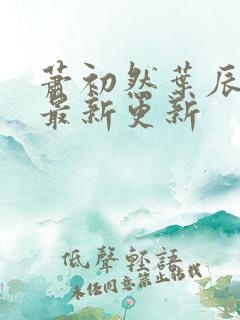 萧初然叶辰
最新更新
低聲輕語
未经同意禁止转载